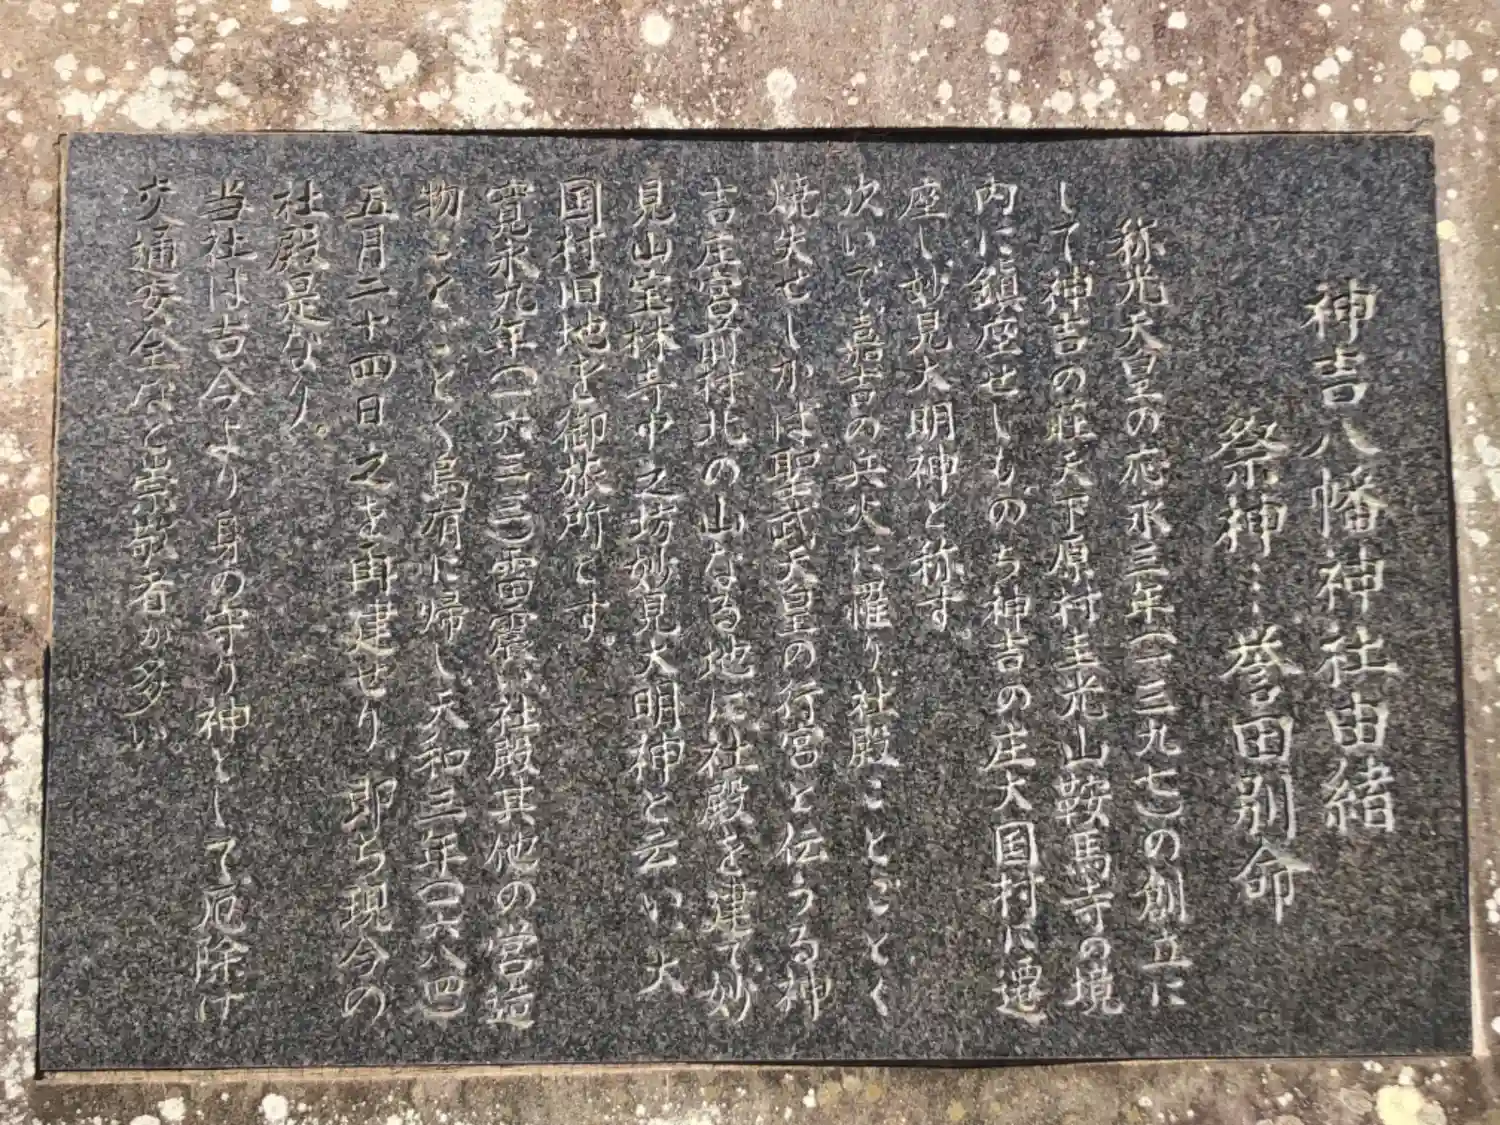 神吉八幡神社由緒
祭神…誉田別命
称光天皇の応永三年(一三九七)の創立に
して神吉の荘天下原村圭光山鞍馬寺の境
内に鎮座せしものち神吉の庄大国村に遷
座し、妙見大明神と称す。
次いで、嘉吉の兵火に罹り、社殿ことごとく
焼失せしかば聖武天皇の行宮と伝うる神
吉庄宮前村北の山なる地に社殿を建て妙
見山宝林寺中之坊妙見大明神と云い、大
国村旧地を御旅所とす。
寛永九年(一六三三)雷震い社殿其他の営造
物ことごとく烏有に帰し、天和三年(一六八四)
五月二十四日之を再建せり、即ち現今の
社殿是なり。
当社は吉今より身の守り神として厄除け
交通安全など崇敬者が多い。